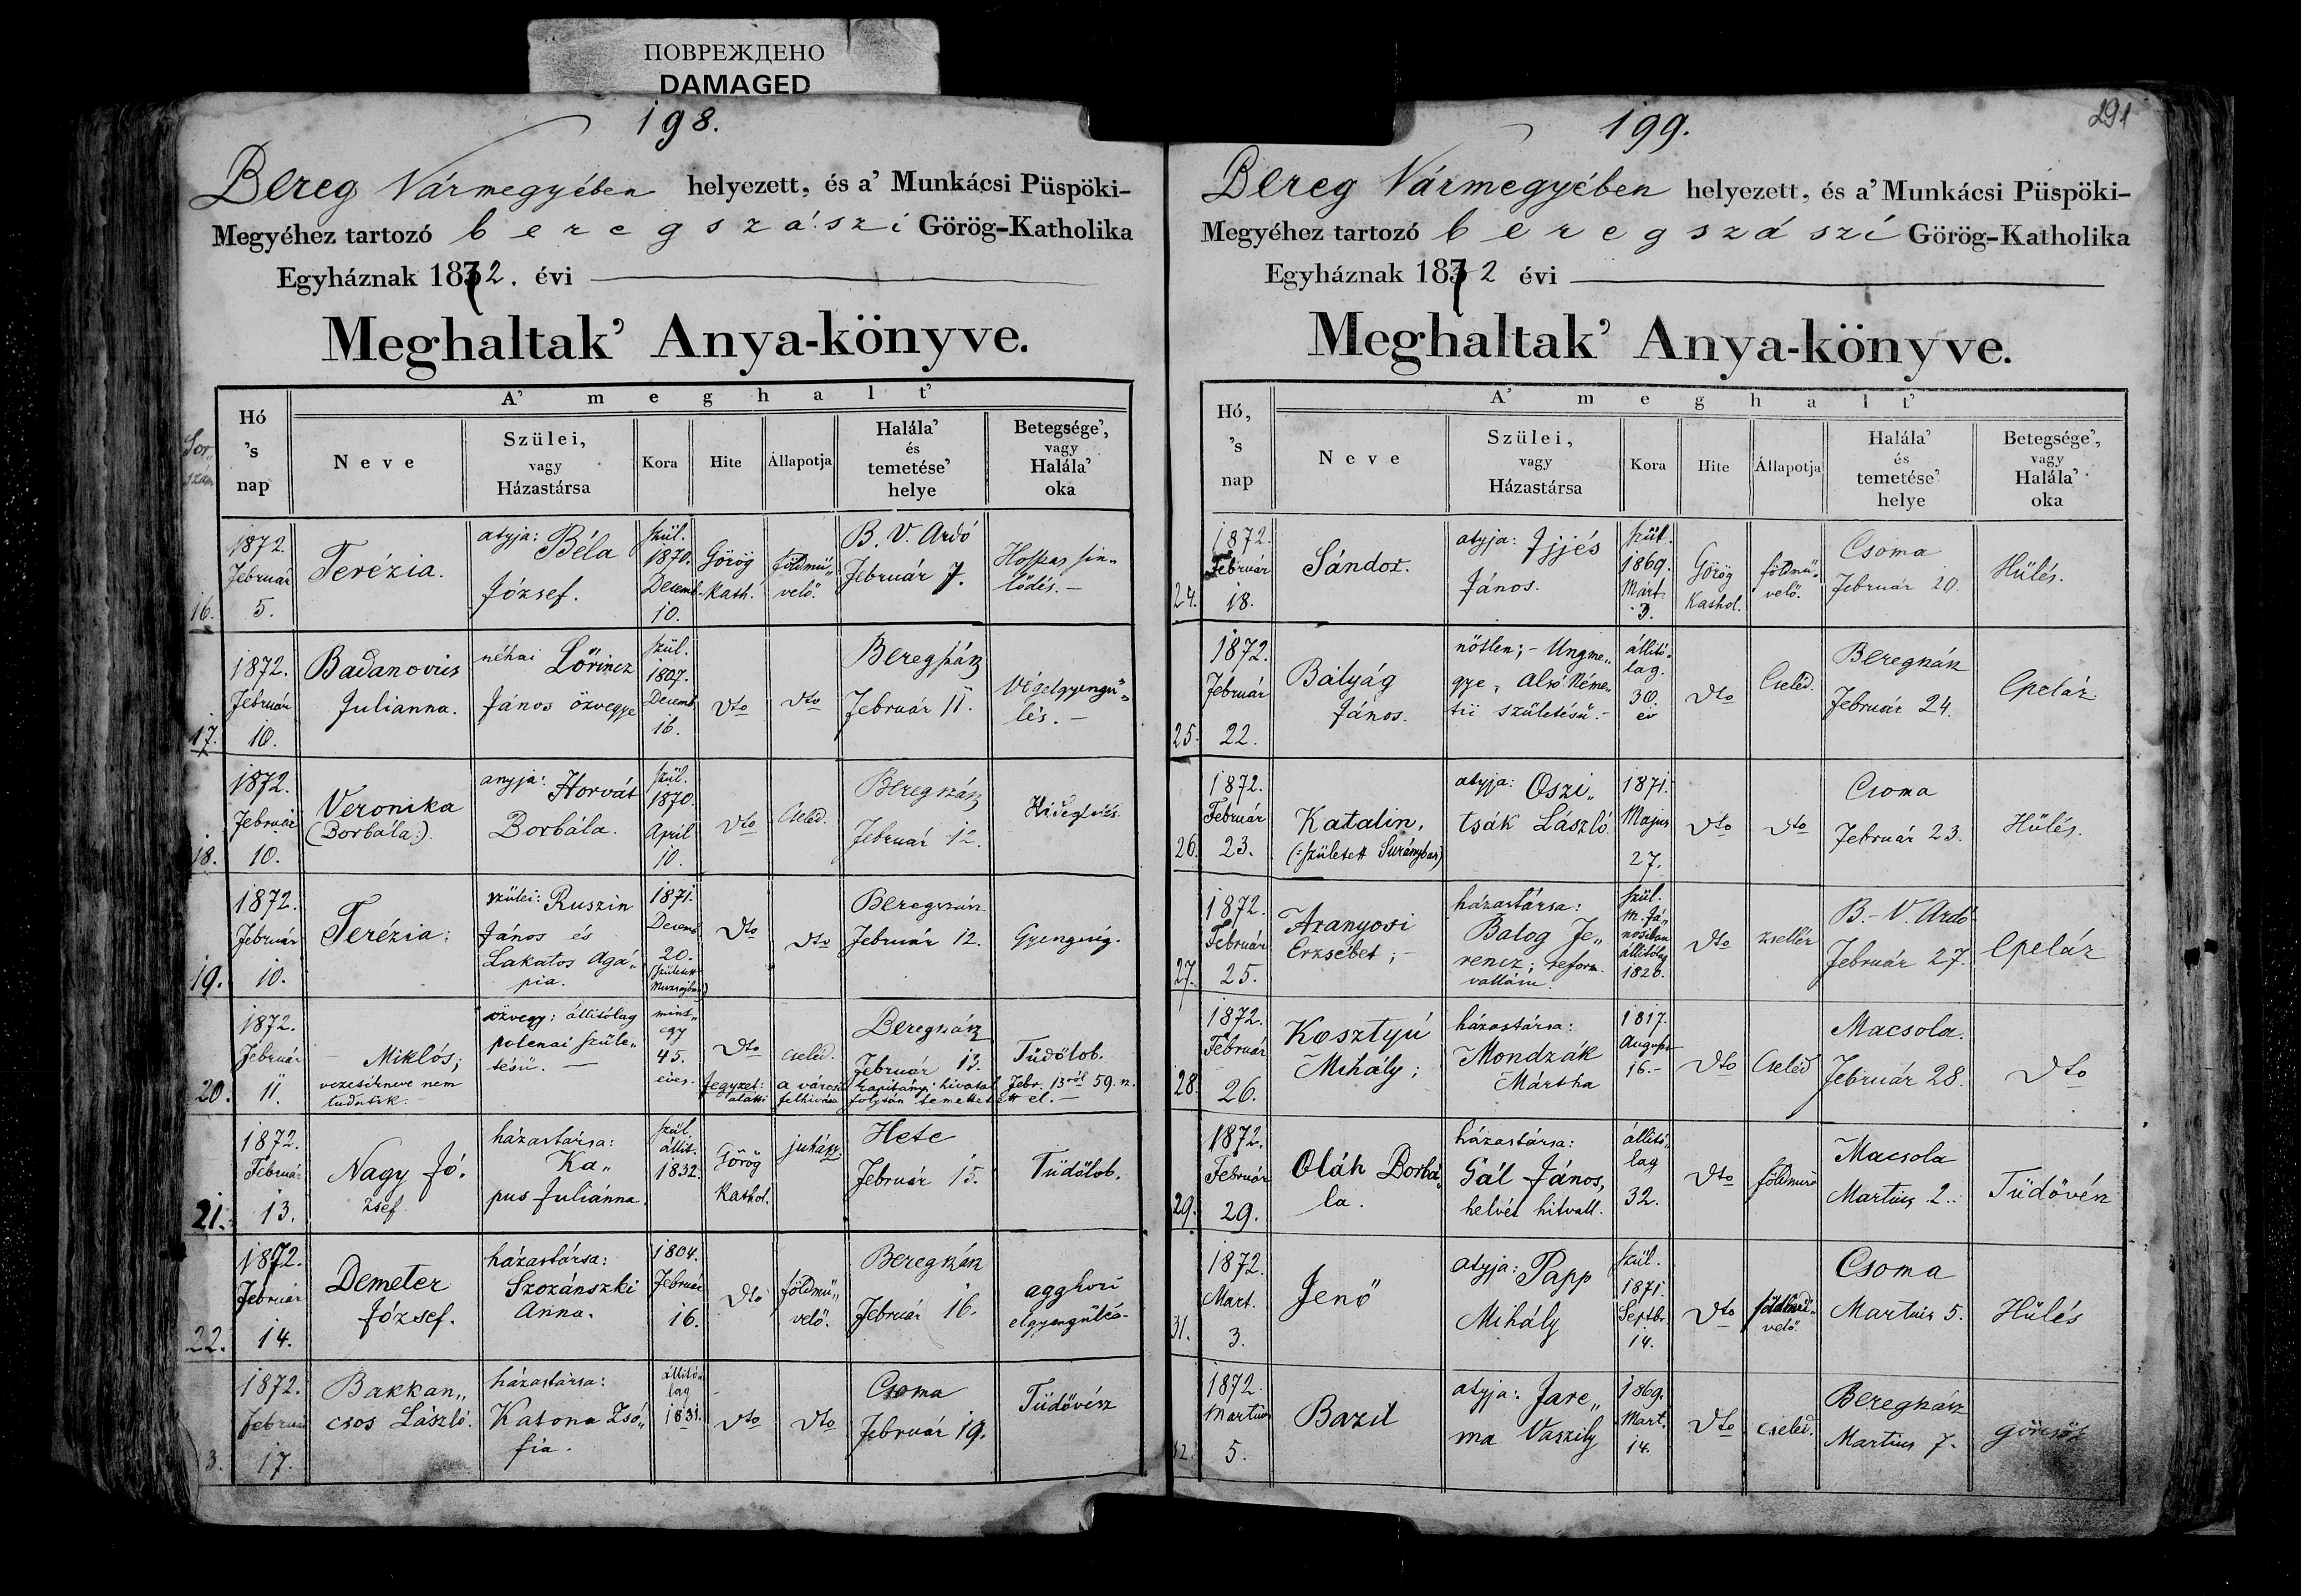 ПОВРЕЖДЕНО
DAMAGED
198.
Bereg Vármegyében helyezett, és a' Munkácsi Püspöki-
Megyéhez tartozó beregszászi Görög-Katholika
Egyháznak 1872. évi
Meghaltak' Anya-könyve.
Sor-
szám
Hó
's
nap
A' meghalt'
Neve
Szülei,
vagy
Házastársa
Kora
Hite
Állapotja
Halála'
és
temetése'
helye
Betegsége',
vagy
Halála'
oka
16.
1872.
Február
5.
Terézia.
atyja: Béla
József.
szül.
1870.
Decemb.
10.
Görög
Kath.
földmű„
velő.
B. V. Ardó
Február 7.
Hosszas sin„
lődés. —
17.
1872.
Február
10.
Badanovics
Julianna.
néhai Lőrincz
János özvegye
szül.
1807.
Decemb.
16.
dto
dto
Beregszász
Február 11.
Végelgyengü„
lés. —
18.
1872.
Február
10.
Veronika
(Borbála:).
anyja: Horvát
Borbála.
szül.
1870.
April
10.
dto
Cseléd.
Beregszász
Február 12.
19.
1872.
Február
10.
Terézia:
szülei: Ruszin
János és
Lakatos Agá„
pia.
1871.
Decemb
20.
(született
Muzsajban)
dto
dto
Beregszász
Február 12.
Gyengeség.
20.
1872.
Február
11.
Miklós;
vezetékneve nem
tudatik.
özvegy: állitólag
polenai szüle„
tésü. —
mint„
egy
45.
éves.
dto
cseléd.
Beregszász
Február 13.
Tüdőlob.
Jegyzet: a városi kapitányi hivatal Febr. 13ról 59. n.
alatti felhivása folytán temettetett el. —
21.
1872.
Február
13.
Nagy Jó„
zsef
házastársa:
Ka„
pus Juliánna.
szül.
állit.
1832.
Görög
Kathol.
juhász.
Hete
Február 15.
Tüdőlob.
22.
1872.
Február
14.
Demeter
József.
házastársa:
Szozánszki
Anna.
1804.
Február
16.
dto
földmű„
velő.
Beregszász
Február 16.
aggkori
elgyengülés
3.
1872.
Február
17.
Bakkan„
csos László.
házastársa:
Katona Zsó„
fia.
állitó„
lag
1831.
dto
dto
Csoma
Február 19.
Tüdővész
199.
291
Bereg Vármegyében helyezett, és a' Munkácsi Püspöki-
Megyéhez tartozó beregszászi Görög-Katholika
Egyháznak 1872 évi
Meghaltak' Anya-könyve.
Hó,
's
nap
A' meghalt'
Neve
Szülei,
vagy
Házastársa
Kora
Hite
Állapotja
Halála'
és
temetése'
helye
Betegsége',
vagy
Halála'
oka
24.
1872.
Február
18.
Sándor.
atyja: Ijjés
János.
szül.
1869.
Márt.
3.
Görög
Kathol.
földmű„
velő.
Csoma
Február 20.
Hülés.
25.
1872.
Február
22.
Bályág
János.
nőtlen; - Ungme„
gye, Alsó Néme„
tii születésü. -
állitó„
lag.
30.
év
dto
Cseléd.
Beregszász
Február 24.
26.
1872.
Február
23.
Katalin,
(:született Surányban)
atyja: Oszi„
tsák László.
1871.
Majus
27.
dto
dto
Csoma
Február 23.
Hülés.
27.
1872.
Február
25.
Aranyosi
Erzsébet; -
házastársa:
Balog Fe„
rencz; reform.
vallásu.
szül.
M. Já„
nosiban
állitólag
1820.
dto
zsellér
B.- V. Ardó
Február 27.
28.
1872.
Február
26.
Kosztyú
Mihály;
házastársa:
Mondzák
Mártha
1817.
August
16. -
dto
Cseléd
Macsola.
Február 28.
dto
29.
1872.
Február
29.
Oláh Borbá„
la.
házastársa:
Gál János,
helvét hitvall.
állitó„
lag
32.
dto
földmivő
Macsola
Martius 2.
Tüdővész
31.
1872.
Mart.
3.
Jenő
atyja: Papp
Mihály
szül.
1871.
Septbr.
14.
dto
földmű„
velő.
Csoma
Martius 5.
Hülés
32.
1872.
Martius
5.
Bazil
atyja: Jare„
ma Vaszily
1869.
Mart.
14.
dto
cseléd.
Beregszász
Martius 7.
görcsök